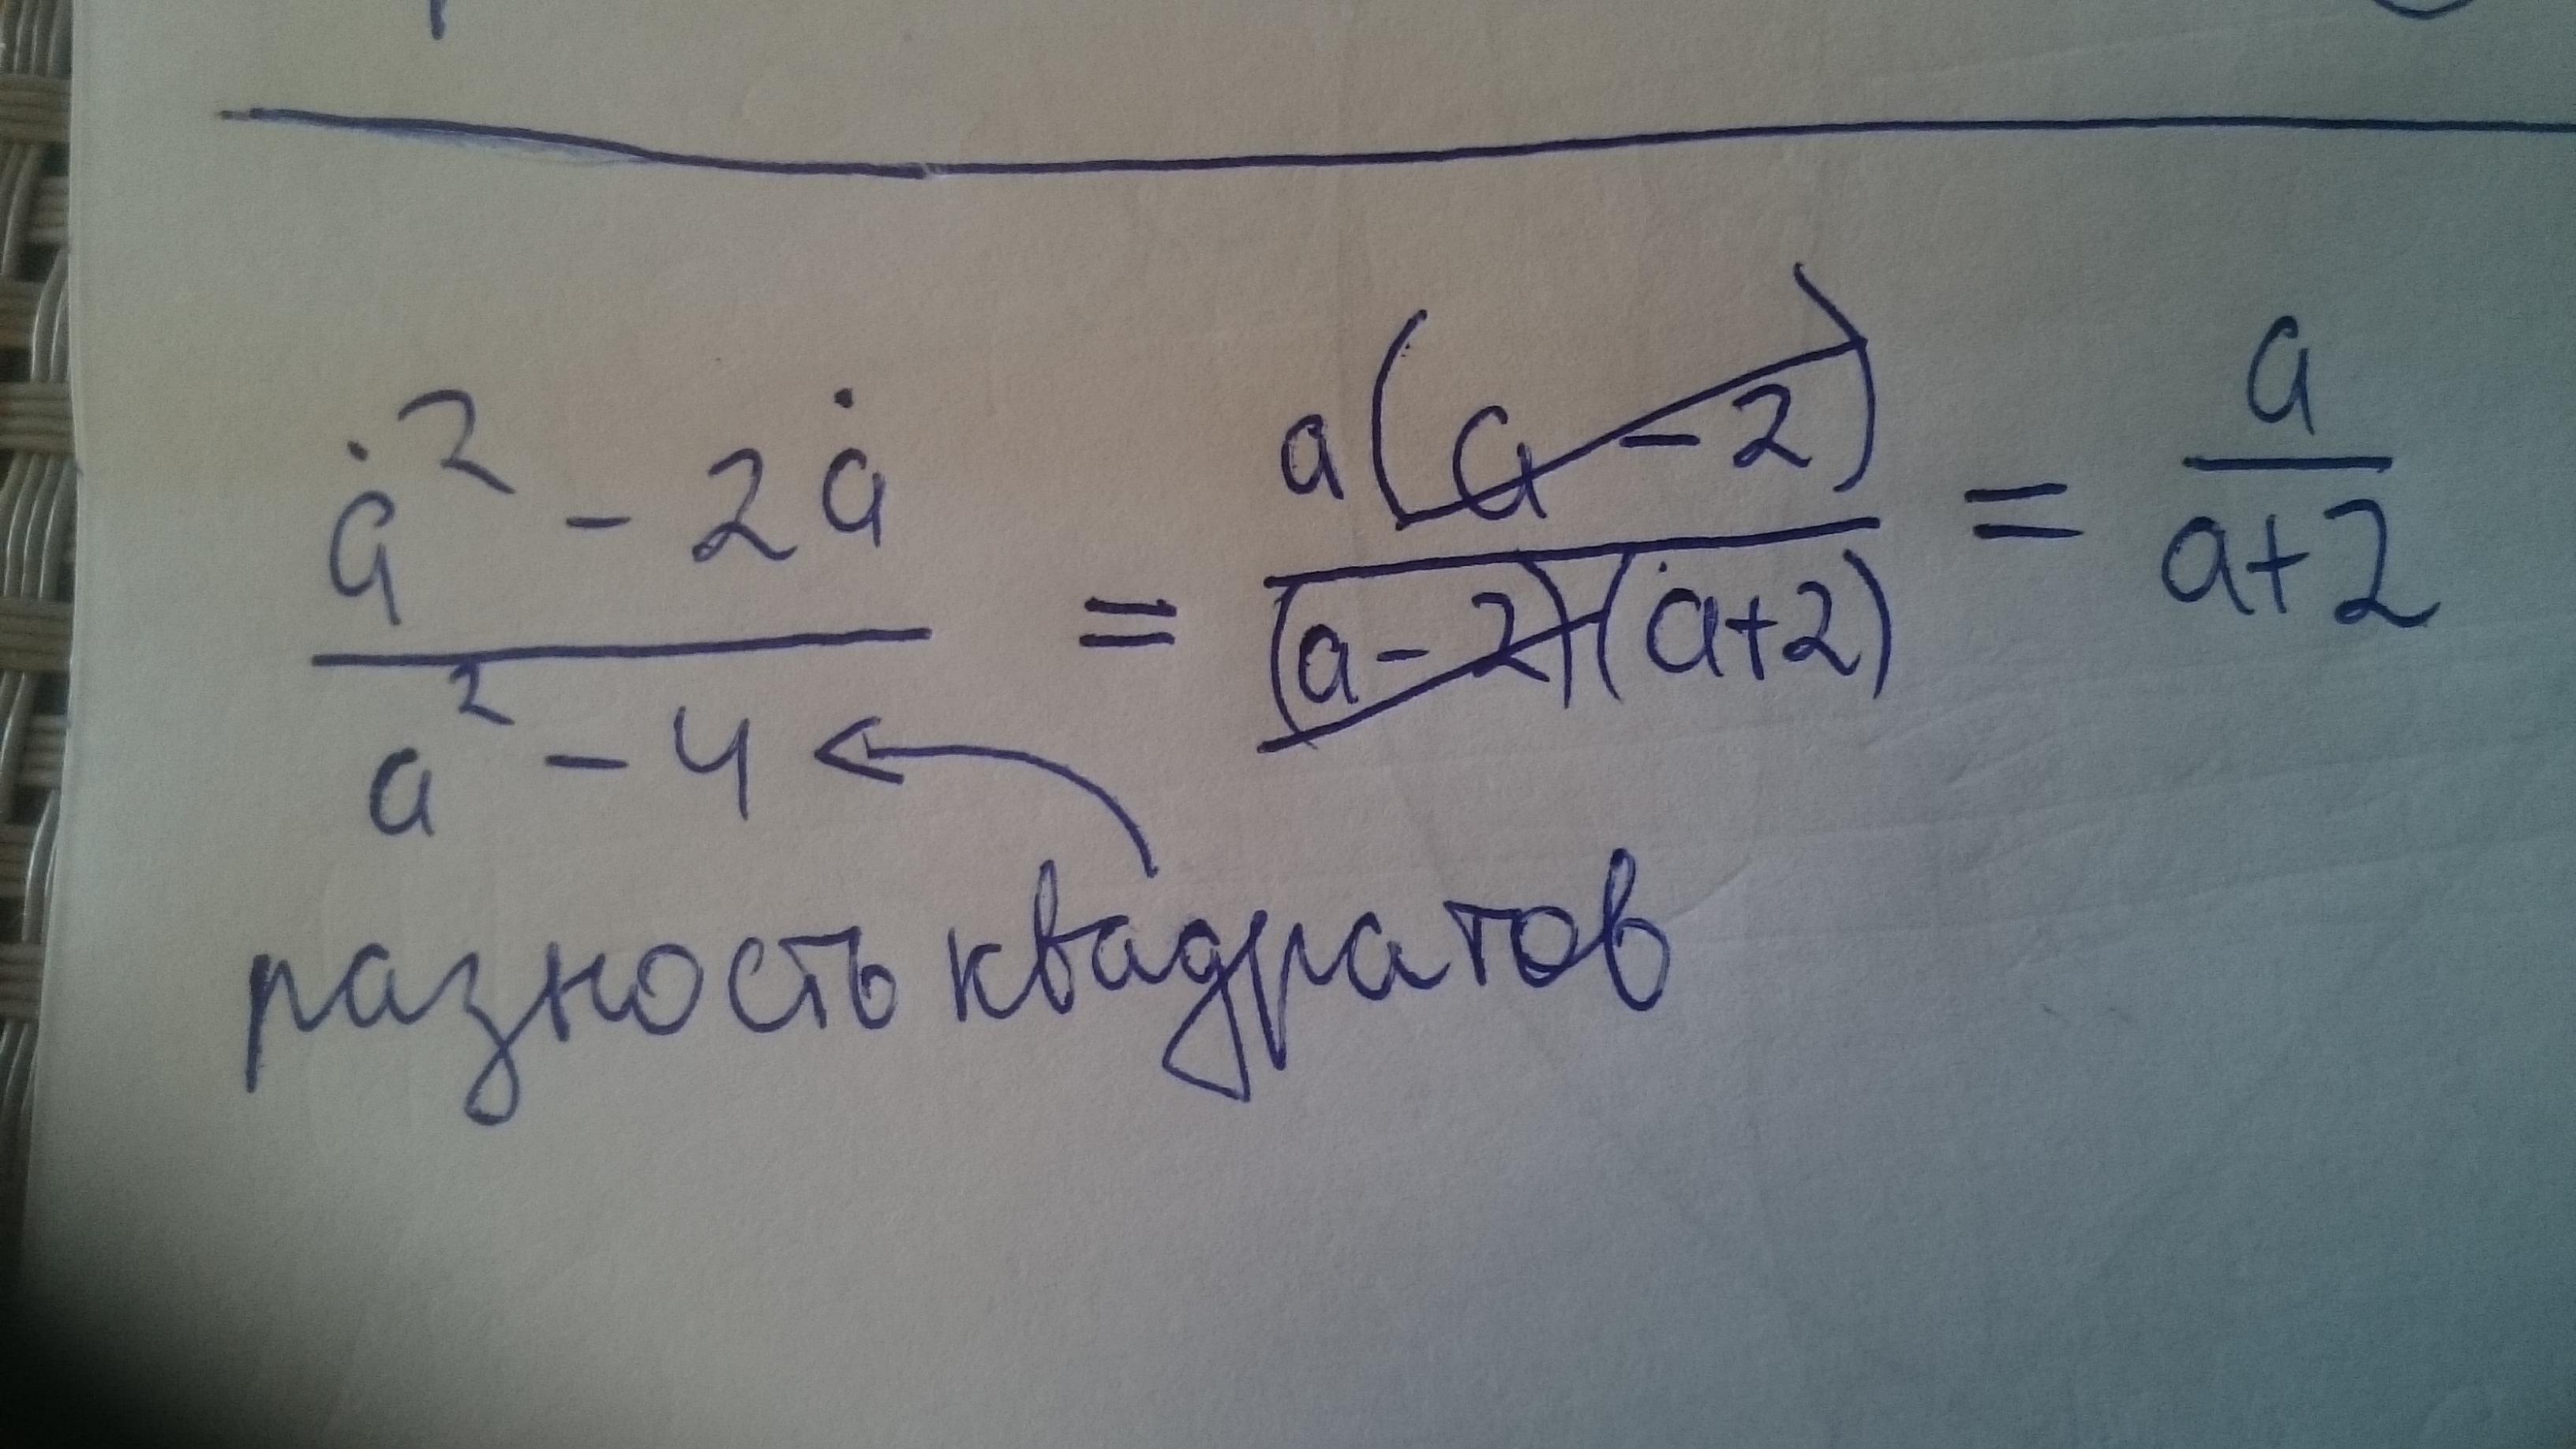 a² - 2a / a² - 4 = a(a - 2) / (a - 2)(a + 2) = a / a+2
разность квадратов